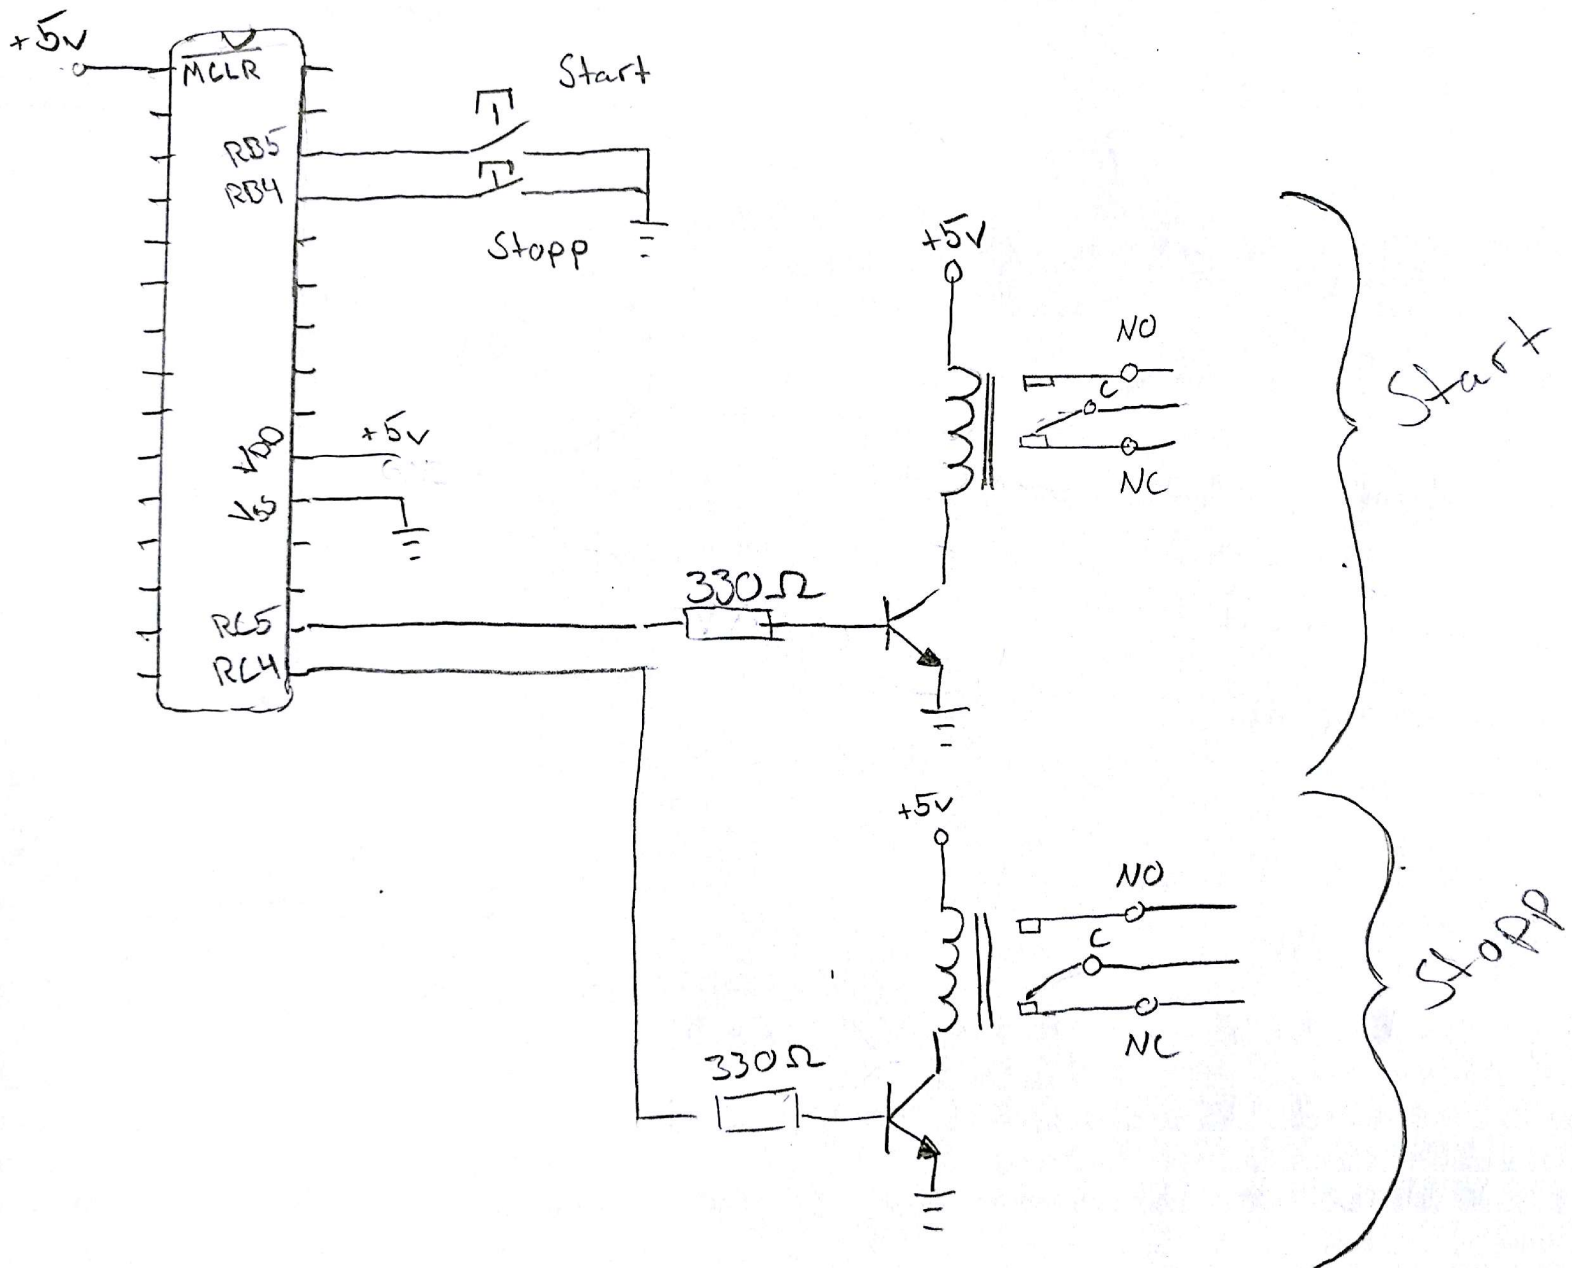 +5v
MCLR
Start
RB5
RB4
Stopp
+5v
NO
C
NC
Start
VDD
+5v
VSS
330Ω
RC5
RC4
+5v
NO
C
NC
Stopp
330Ω